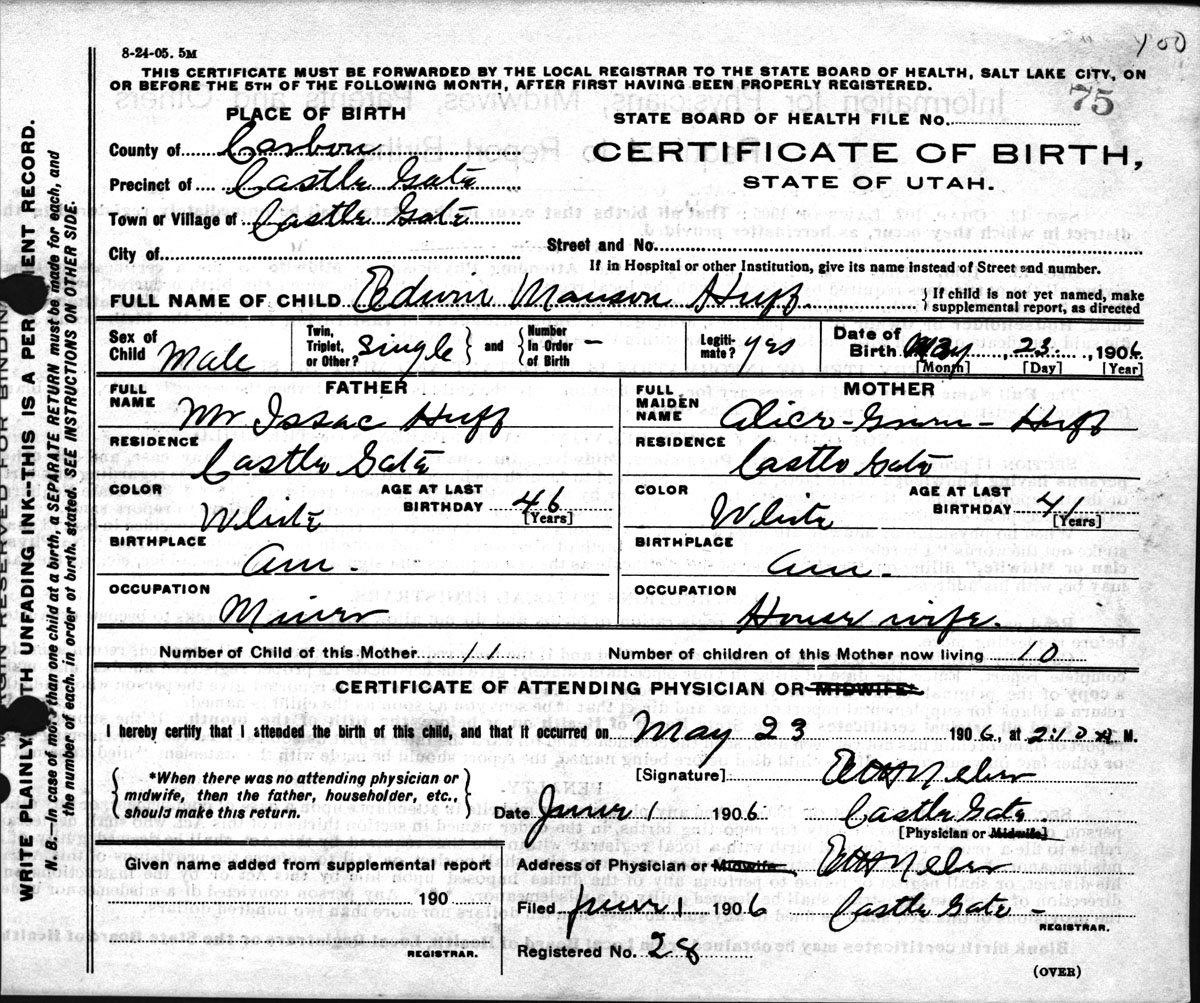 8-24-05. 5M
100
THIS CERTIFICATE MUST BE FORWARDED BY THE LOCAL REGISTRAR TO THE STATE BOARD OF HEALTH, SALT LAKE CITY, ON
OR BEFORE THE 5TH OF THE FOLLOWING MONTH, AFTER FIRST HAVING BEEN PROPERLY REGISTERED.
75
PLACE OF BIRTH
STATE BOARD OF HEALTH FILE No.
County of Carbon
CERTIFICATE OF BIRTH,
Precinct of Castle Gate
STATE OF UTAH.
Town or Village of Castle Gate
City of
Street and No.
If in Hospital or other Institution, give its name instead of Street and number.
FULL NAME OF CHILD Edwin Manson Huff } If child is not yet named, make supplemental report, as directed
Sex of Child Male
Twin, Triplet, or Other? single } and { Number In Order of Birth –
Legiti-mate? yes
Date of Birth May, 23, 1906
[Month] [Day] [Year]
FATHER
FULL NAME Mr Issac Huff
RESIDENCE
Castle Gate
COLOR White
AGE AT LAST BIRTHDAY 46
[Years]
BIRTHPLACE
Am.
OCCUPATION
Miner
MOTHER
FULL MAIDEN NAME Alice - - Huff
RESIDENCE
Castle Gate
COLOR White
AGE AT LAST BIRTHDAY 41
[Years]
BIRTHPLACE
Am.
OCCUPATION
House wife.
Number of Child of this Mother 11
Number of children of this Mother now living 10
CERTIFICATE OF ATTENDING PHYSICIAN OR MIDWIFE*
I hereby certify that I attended the birth of this child, and that it occurred on May 23 1906, at 2:10 A M.
{ *When there was no attending physician or midwife, then the father, householder, etc., should make this return. }
[Signature]
Date June 1 1906 Castle Gate
[Physician or Midwife]
Given name added from supplemental report
190
REGISTRAR.
Address of Physician or Midwife
Filed June 1 1906 Castle Gate
REGISTRAR.
Registered No. 28
(OVER)
WRITE PLAINLY WITH UNFADING INK-THIS IS A PERMANENT RECORD.
N. B.—In case of more than one child at a birth, a SEPARATE RETURN must be made for each, and
the number of each, in order of birth, stated. SEE INSTRUCTIONS ON OTHER SIDE.